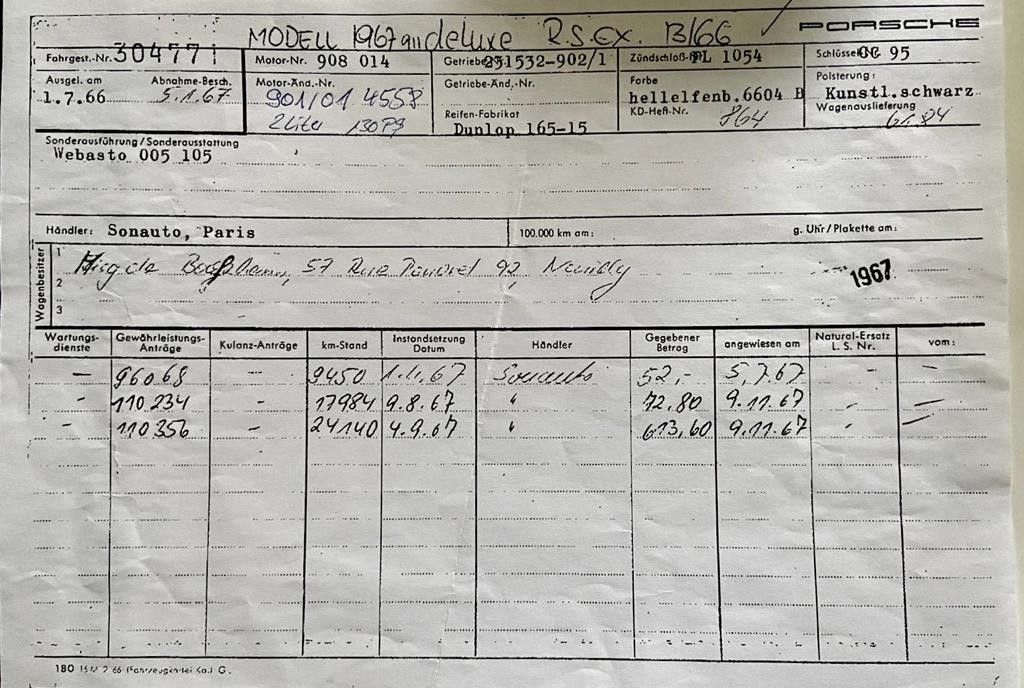 MODELL 1967 911 deluxe R.S.EX. B/66 PORSCHE
Fahrgest.-Nr. 304771 Motor-Nr. 908 014 Getriebe 231532-902/1 Zündschloß-Nr. PL 1054 Schlüssel CC 95
Ausgel. am Abnahme-Besch. Motor-Änd.-Nr. Getriebe-Änd.-Nr. Farbe Polsterung:
1.7.66 5.1.67 901/01 4558 hellelfenb. 6604 B Kunstl. schwarz
Reifen-Fabrikat KD-Heft-Nr. Wagenauslieferung
2 Liter 130 PS Dunlop 165-15
Sonderausführung / Sonderausstattung
Webasto 005 105
Händler: Sonauto, Paris 100.000 km am: g. Uhr / Plakette am:
Wagenbesitzer
1
57 Rue 92, 1967
2
3
Wartungs-dienste Gewährleistungs-Anträge Kulanz-Anträge km-Stand Instandsetzung Datum Händler Gegebener Betrag angewiesen am Natural-Ersatz L. S. Nr. vom:
— 96068 — 9450 67 Sonauto 52,- 5.7.67 - -
- 110 234 - 17984 9.8.67 " 72,80 9.11.67 - -
- 110 356 - 24140 4.9.67 " 613,60 9.11.67 - -
180